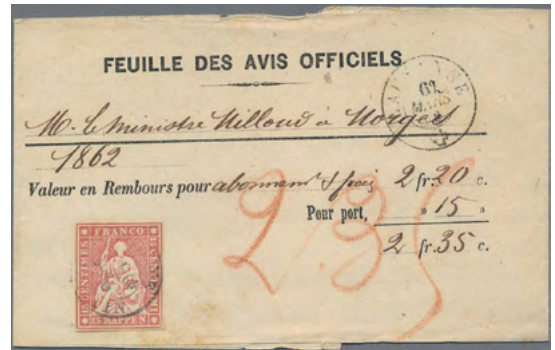 FEUILLE DES AVIS OFFICIELS
LAUSANNE
MARS
M. le Ministre Milloud à Morges
1862
Valeur en Rembours pour abonnemt & frais 2 fr. 20 c.
Pour port, " 15 "
2 fr. 35 c.
2.35
FRANCO
15 CENTIMES
15 RAPPEN